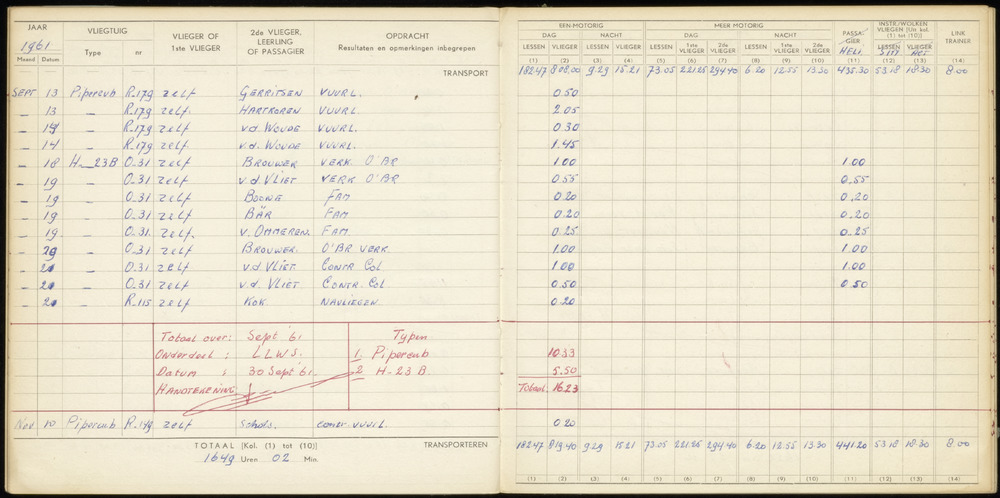 JAAR VLIEGTUIG VLIEGER OF 1ste VLIEGER 2de VLIEGER, LEERLING OF PASSAGIER OPDRACHT Resultaten en opmerkingen inbegrepen
1961
Maand Datum Type nr
EEN-MOTORIG MEER MOTORIG PASSA- GIER INSTR./WOLKEN VLIEGEN [Un kol. (1) tot (10)] LINK TRAINER
DAG NACHT DAG NACHT HELI
LESSEN VLIEGER LESSEN VLIEGER LESSEN 1ste VLIEGER 2de VLIEGER LESSEN 1ste VLIEGER 2de VLIEGER LESSEN VLIEGER
SIM ACT
(1) (2) (3) (4) (5) (6) (7) (8) (9) (10) (11) (12) (13) (14)
TRANSPORT 182.47 808.00 9.29 15.21 73.05 221.25 294.40 6.20 12.55 13.30 435.30 53.18 18.30 8.00
SEPT 13 Pipercub R.179 zelf GERRITSEN VUURL. 0.50
- 13 - R.179 zelf. HARTKOREN VUURL. 2.05
- 14 - R.179 zelf v.d. WOUDE VUURL. 0.30
- 14 - R.179 zelf v.d. WOUDE VUURL. 1.45
- 18 H-23B O.31 zelf BROUWER VERK. O'BR 1.00 1.00
- 19 - O.31 zelf v.d VLIET VERK O'BR 0.55 0.55
- 19 - O.31 zelf FAM 0.20 0.20
- 19 - O.31 zelf BÄR FAM 0.20 0.20
- 19 - O.31 zelf. v. OMMEREN. FAM. 0.25 0.25
- 20 - O.31 zelf BROUWER. O'BR VERK. 1.00 1.00
- - O.31 zelf v.d. VLIET. CONTR. Col 1.00 1.00
- - O.31 zelf v.d. VLIET CONTR. Col 0.50 0.50
- - R.115 zelf KOK. NAVLIEGEN. 0.20
Totaal over: Sept '61 Typen
Onderdeel : LLWS. 1. Pipercub 10.33
Datum : 30 Sept '61. 2 H-23B 5.50
HANDTEKENING Totaal. 16.23
Nov 10 Pipercub R.149 zelf Schols. contr. vuurl. 0.20
TOTAAL [Kol. (1) tot (10)] TRANSPORTEREN 182.47 819.40 9.29 15.21 73.05 221.25 294.40 6.20 12.55 13.30 441.20 53.18 18.30 8.00
1649 Uren 02 Min.
(1) (2) (3) (4) (5) (6) (7) (8) (9) (10) (11) (12) (13) (14)